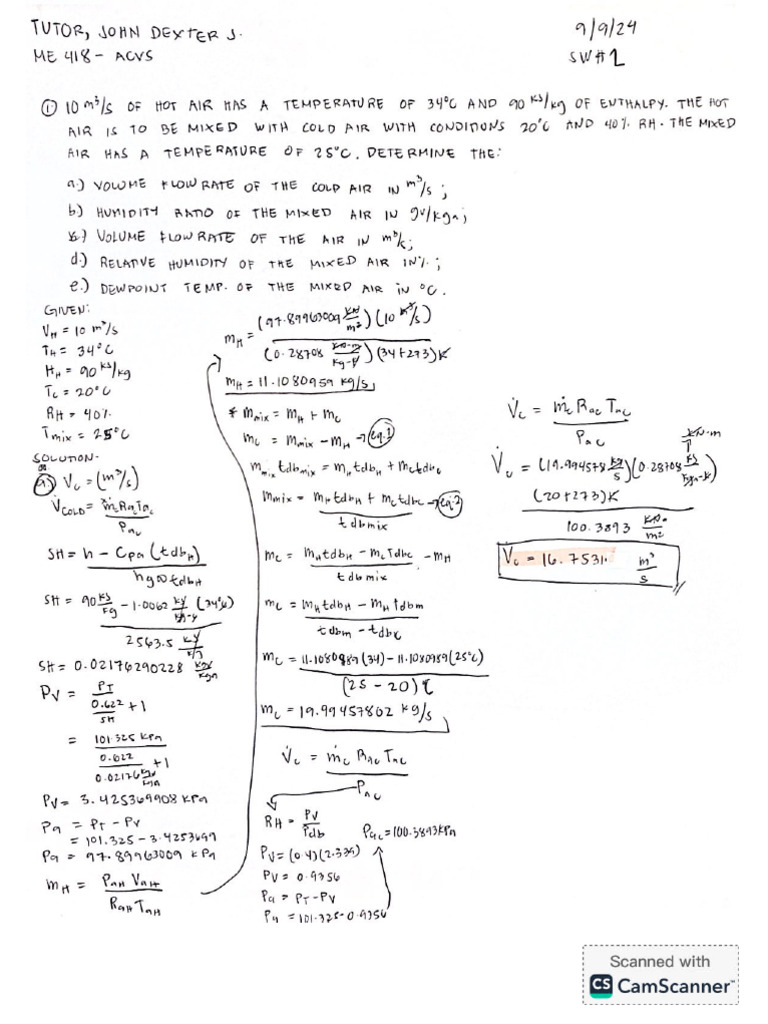 TUTOR, JOHN DEXTER J.
9/9/24
ME 418 - ACVS
SW#1
① 10 m³/s OF HOT AIR HAS A TEMPERATURE OF 34°C AND 90 KJ/kg OF ENTHALPY. THE HOT
AIR IS TO BE MIXED WITH COLD AIR WITH CONDITIONS 20°C AND 40% RH. THE MIXED
AIR HAS A TEMPERATURE OF 25°C. DETERMINE THE:
a.) VOLUME FLOW RATE OF THE COLD AIR IN m³/s;
b.) HUMIDITY RATIO OF THE MIXED AIR IN gv/kga;
c.) VOLUME FLOW RATE OF THE AIR IN m³/s;
d.) RELATIVE HUMIDITY OF THE MIXED AIR IN %;
e.) DEWPOINT TEMP. OF THE MIXED AIR IN °C.
GIVEN:
V̇H = 10 m³/s
TH = 34°C
HH = 90 KJ/kg
TC = 20°C
RH = 40%
Tmix = 25°C
SOLUTION.
a.) Vc = (m³/s)
V̇COLD = ṁc Ra Tac / Pac
SH = h - Cpa (tdbH) / hg@tdbH
SH = 90 KJ/kg - 1.0062 KJ/kg-K (34°C) / 2563.5 KJ/kg
SH = 0.02176290228 kgv/kga
PV = PT / (0.622/SH + 1)
= 101.325 KPa / (0.622 / 0.0217629 kgv/kga + 1)
PV = 3.425369908 KPa
Pa = PT - PV
= 101.325 - 3.4253699
Pa = 97.89963009 KPa
mH = PaH VaH / RaH TaH
mH = (97.89963009 KN/m²)(10 m³/s) / (0.28708 KN-m/Kg-K)(34+273)K
mH = 11.1080959 kg/s
* mmix = mH + mc
mc = mmix - mH → eq.1
mmix tdbmix = mH tdbH + mc tdbc
mmix = mH tdbH + mc tdbc / tdbmix → eq.2
mc = mH tdbH - mc Tdbc / tdbmix - mH
mc = mH tdbH - mH tdbm / tdbm - tdbc
mc = 11.1080989(34) - 11.1080989(25°C) / (25 - 20)°C
mc = 19.99457802 kg/s
V̇c = ṁc Rac Tac / Pac
RH = PV / Pdb
PV = (0.4)(2.339)
PV = 0.9356
Pa = PT - PV
Pa = 101.325 - 0.9356
Pac = 100.3893 KPa
V̇c = ṁc Rac Tac / Pac
V̇c = (19.994578 kg/s)(0.28708 KJ/kga-K)
KN-m
(20+273)K
100.3893 KN/m²
V̇c = 16.7531 m³/s
Scanned with
CS CamScanner